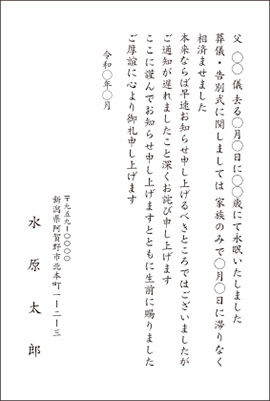 父 ◯◯ 儀 去る◯月◯日に◯◯歳にて永眠いたしました
葬儀・告別式に関しましては 家族のみで◯月◯日に滞りなく
相済ませました
本来ならば早速お知らせ申し上げるべきところではございましたが
ご通知が遅れましたこと深くお詫び申し上げます
ここに謹んでお知らせ申し上げますとともに生前に賜りました
ご厚誼に心より御礼申し上げます
令和◯年◯月
〒九五九-〇〇〇〇
新潟県阿賀野市北本町一-二-三
水原太郎